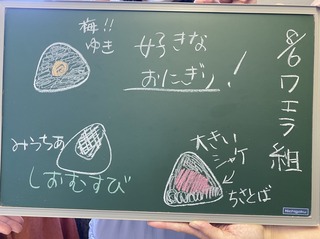 8/6 ワエラ組
好きな
おにぎり!
梅!!
ゆき
みうちあ
しおむすび
大きい
シャケ
ちさとば